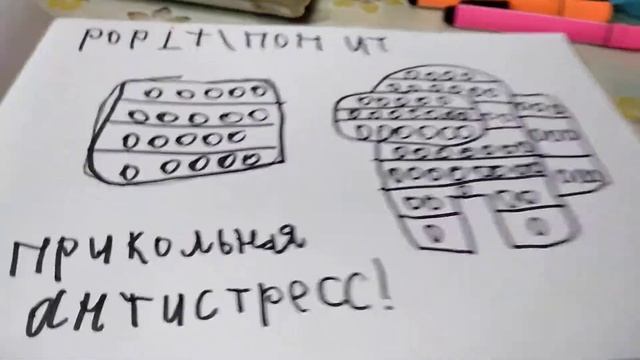 POPIT\ПОП ИТ
прикольная
антистресс!